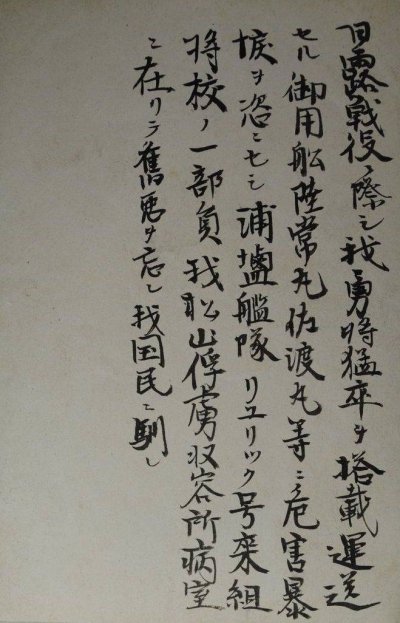 日露戦役ノ際ニ我勇将猛卒ヲ搭載運送
セル御用船陸常丸佐渡丸等ニ危害暴
戻ヲ恣ニセシ浦塩艦隊リユリック号乗組
将校ノ一部負我松山俘虜収容所病室
ニ在リテ舊悪ヲ忘レ我国民ニ馴レ